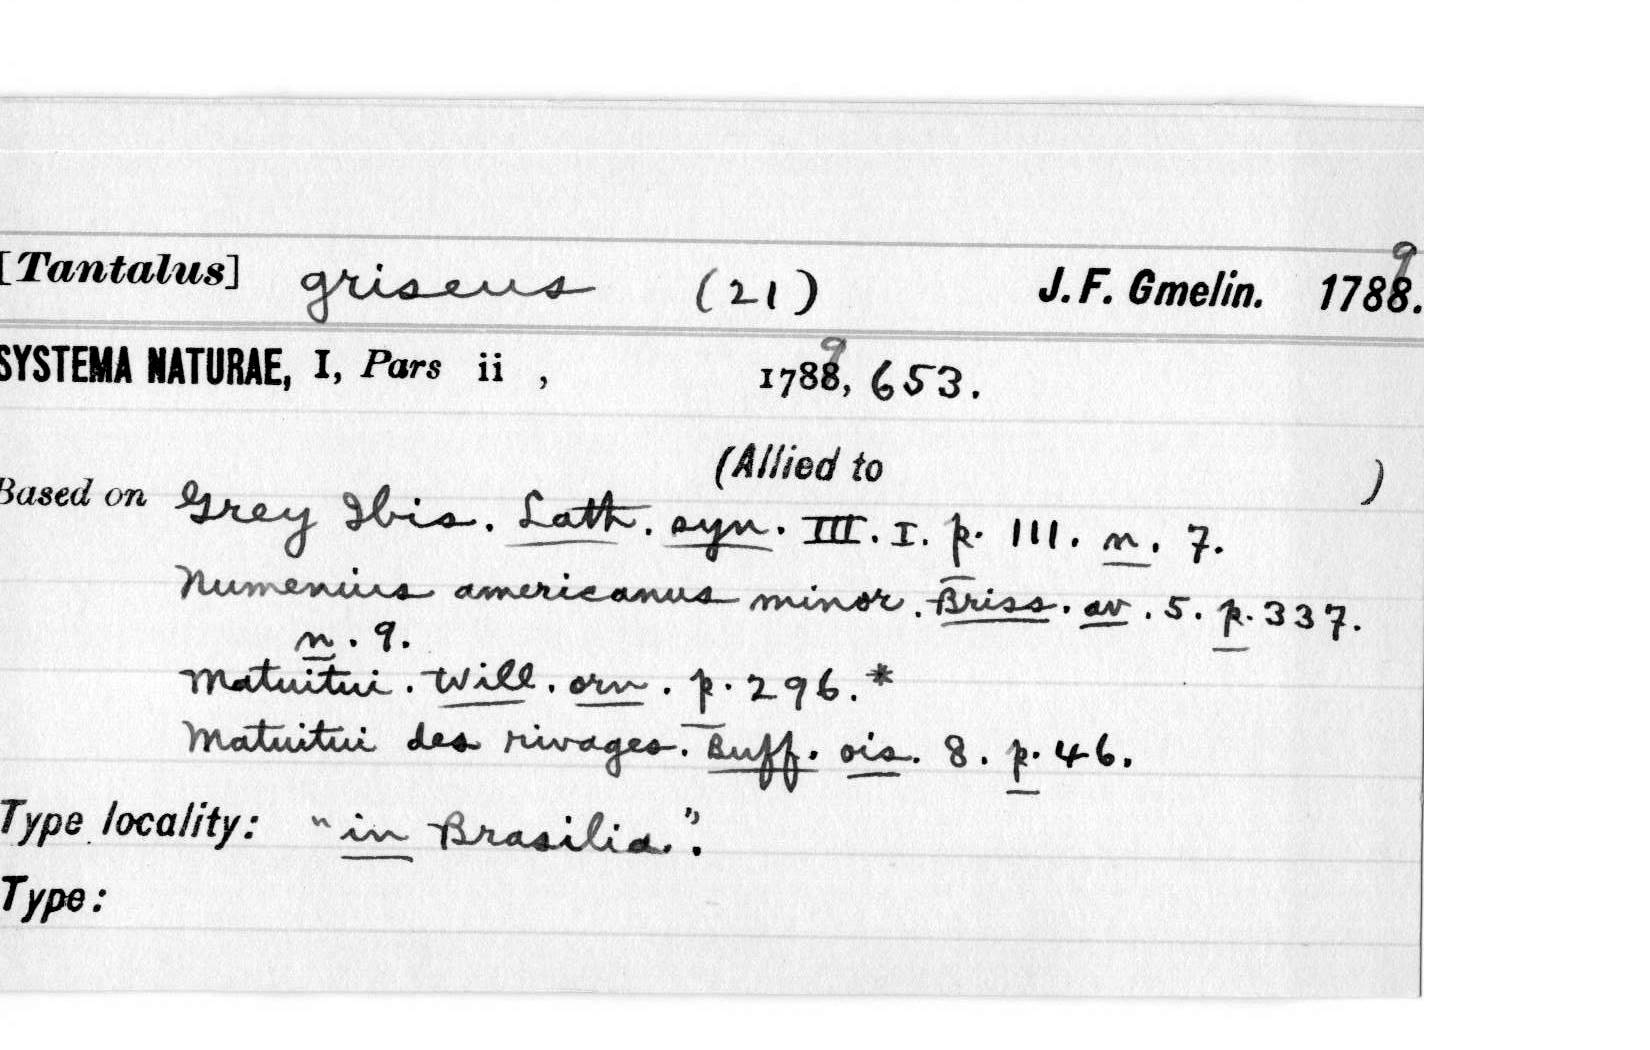 [Tantalus] griseus (21) J. F. Gmelin. 1788. 9
SYSTEMA NATURAE, I, Pars ii , 1788, 9 653.
(Allied to )
Based on Grey Ibis. Lath. syn. III. I. p. 111. n. 7.
Numenius americanus minor. Briss. av. 5. p. 337.
n. 9.
Matuitui. Will. orn. p. 296.*
Matuitui des rivages. Buff. ois. 8. p. 46.
Type locality: "in Brasilia.".
Type: